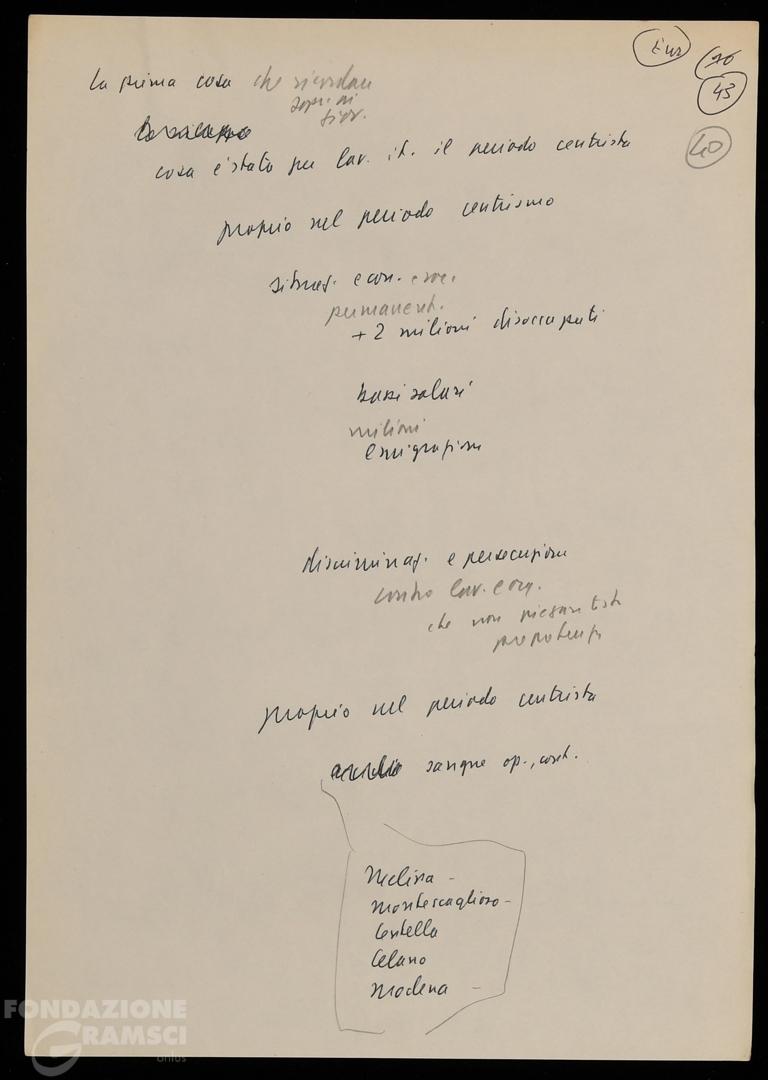 Eur
26
43
40
La prima cosa che ricordare
sopr. ai
giov.
cosa è stato per lav. it. il periodo centrista
proprio nel periodo centrismo
situaz. econ.
permanent.
+ 2 milioni disoccupati
bassi salari
milioni
emigrazione
discriminaz. e persecuzione
contro lav. com.
che non
prepotenz.
proprio nel periodo centrista
sangue op., cont.
Melissa -
Montescaglioso -
Lentella
Celano
Modena -
FONDAZIONE
GRAMSCI
onlus